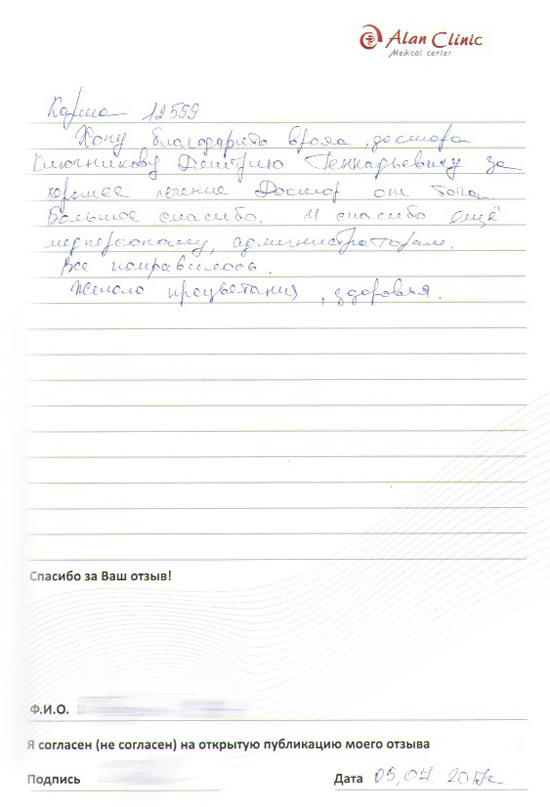 Alan Clinic
Medical center
Карта 12559
Хочу благодарить врача, доктора
Ключникову Дмитрию Геннадьевичу за
хорошее лечение Доктор от бога
Большое спасибо. И спасибо ещё
медперсоналу, администраторам.
Все понравилось.
Желаю процветания, здоровья.
Спасибо за Ваш отзыв!
Ф.И.О.
Я согласен (не согласен) на открытую публикацию моего отзыва
Подпись Дата 05,04. 2017г